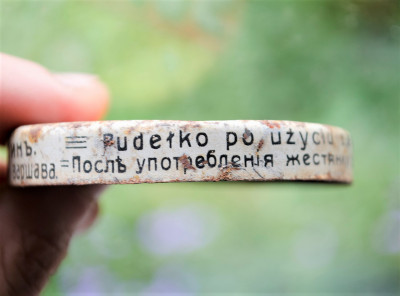 нъ. ≡ Pudełko po użyciu
ршава. = Послѣ употребления жестян